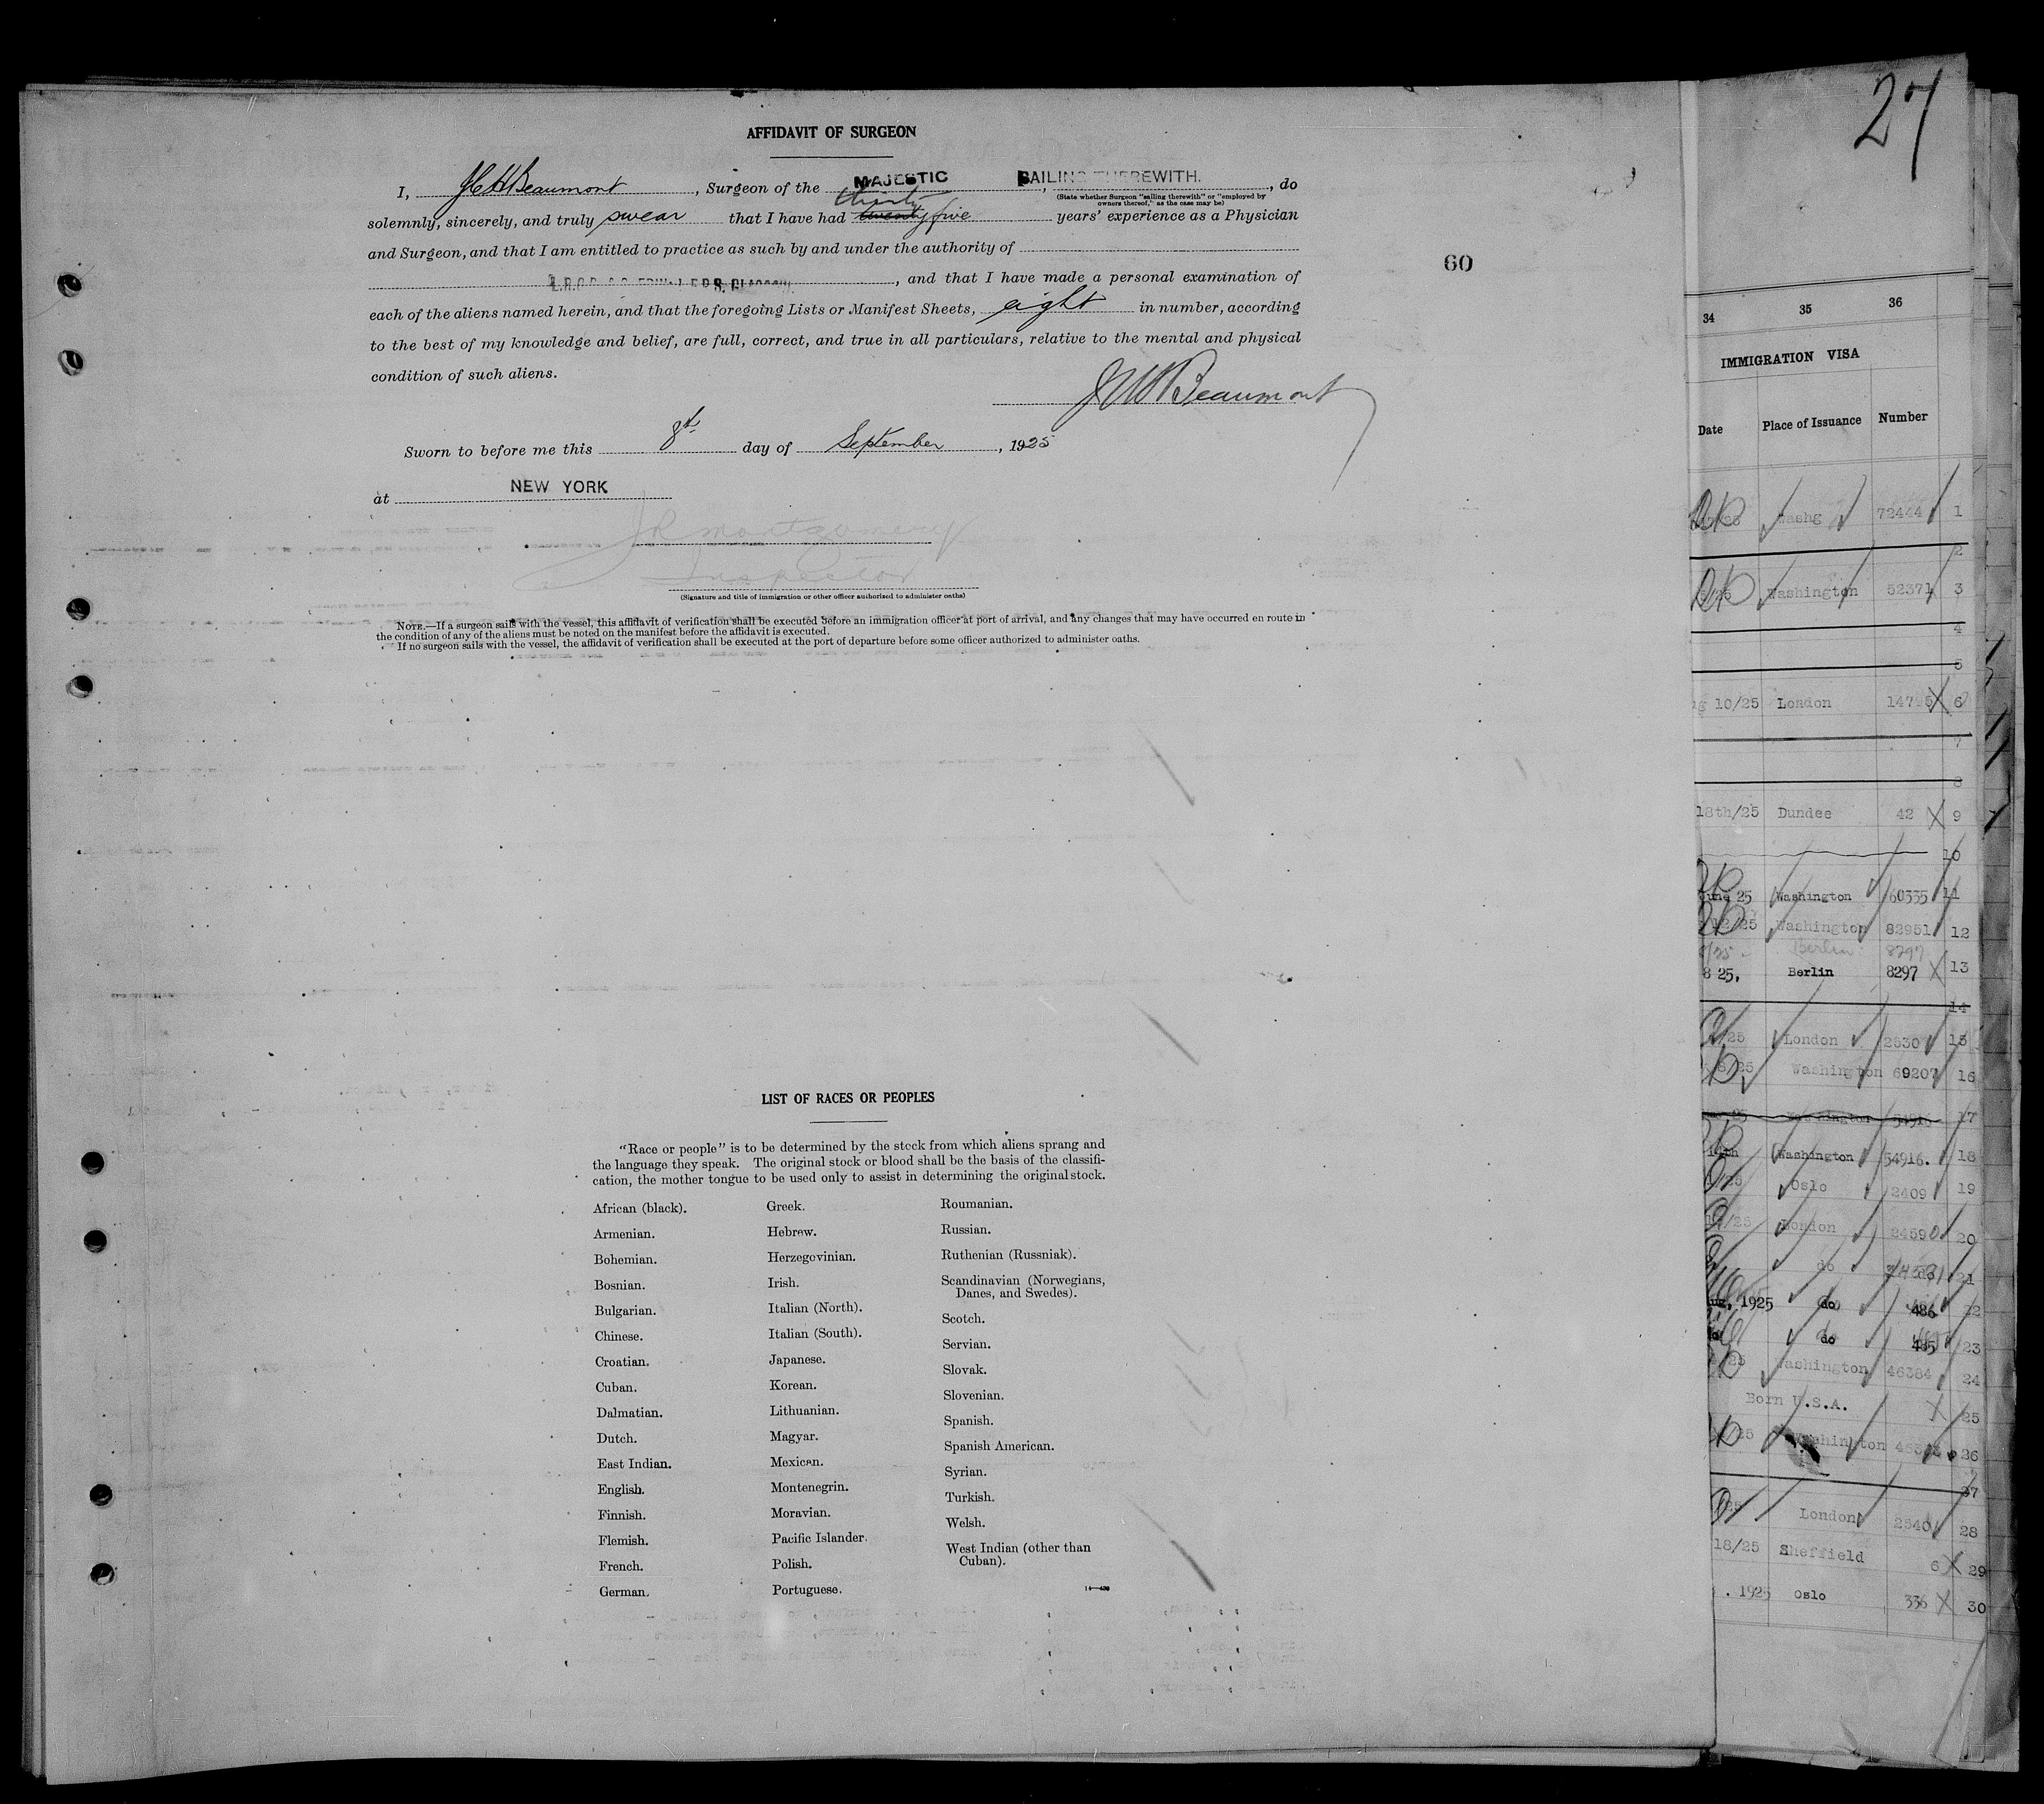 27
AFFIDAVIT OF SURGEON
I, J C H Beaumont, Surgeon of the MAJESTIC, SAILING THEREWITH., do
(State whether Surgeon "sailing therewith" or "employed by
owners thereof," as the case may be)
thirty
solemnly, sincerely, and truly swear that I have had twenty five years' experience as a Physician
and Surgeon, and that I am entitled to practice as such by and under the authority of
, and that I have made a personal examination of
60
each of the aliens named herein, and that the foregoing Lists or Manifest Sheets, eight in number, according
to the best of my knowledge and belief, are full, correct, and true in all particulars, relative to the mental and physical
condition of such aliens.
Beaumont
Sworn to before me this 8th day of September, 1925
at NEW YORK
J R Montgomery
Inspector
(Signature and title of immigration or other officer authorized to administer oaths)
NOTE.—If a surgeon sails with the vessel, this affidavit of verification shall be executed before an immigration officer at port of arrival, and any changes that may have occurred en route in
the condition of any of the aliens must be noted on the manifest before the affidavit is executed.
If no surgeon sails with the vessel, the affidavit of verification shall be executed at the port of departure before some officer authorized to administer oaths.
LIST OF RACES OR PEOPLES
"Race or people" is to be determined by the stock from which aliens sprang and
the language they speak. The original stock or blood shall be the basis of the classifi-
cation, the mother tongue to be used only to assist in determining the original stock.
African (black).
Armenian.
Bohemian.
Bosnian.
Bulgarian.
Chinese.
Croatian.
Cuban.
Dalmatian.
Dutch.
East Indian.
English.
Finnish.
Flemish.
French.
German.
Greek.
Hebrew.
Herzegovinian.
Irish.
Italian (North).
Italian (South).
Japanese.
Korean.
Lithuanian.
Magyar.
Mexican.
Montenegrin.
Moravian.
Pacific Islander.
Polish.
Portuguese.
Roumanian.
Russian.
Ruthenian (Russniak).
Scandinavian (Norwegians,
Danes, and Swedes).
Scotch.
Servian.
Slovak.
Slovenian.
Spanish.
Spanish American.
Syrian.
Turkish.
Welsh.
West Indian (other than
Cuban).
34 35 36
IMMIGRATION VISA
Date Place of Issuance Number
Washg 72444 1
2
Washington 52371 3
4
5
10/25 London 6
7
8
18th/25 Dundee 42 9
10
25 Washington 60335 11
/25 Washington 82951 12
Berlin 8297
8 25, Berlin 8297 13
14
/25 London 2530 15
/25 Washington 69207 16
Washington 54916 17
Washington 54916. 18
/25 Oslo 2409 19
/25 London 24590 20
do 21
1925 do 486 22
do 485 23
25 Washington 46384 24
Born U.S.A. 25
/25 Washington 26
27
London 2540 28
18/25 Sheffield 6 29
. 1925 Oslo 336 30